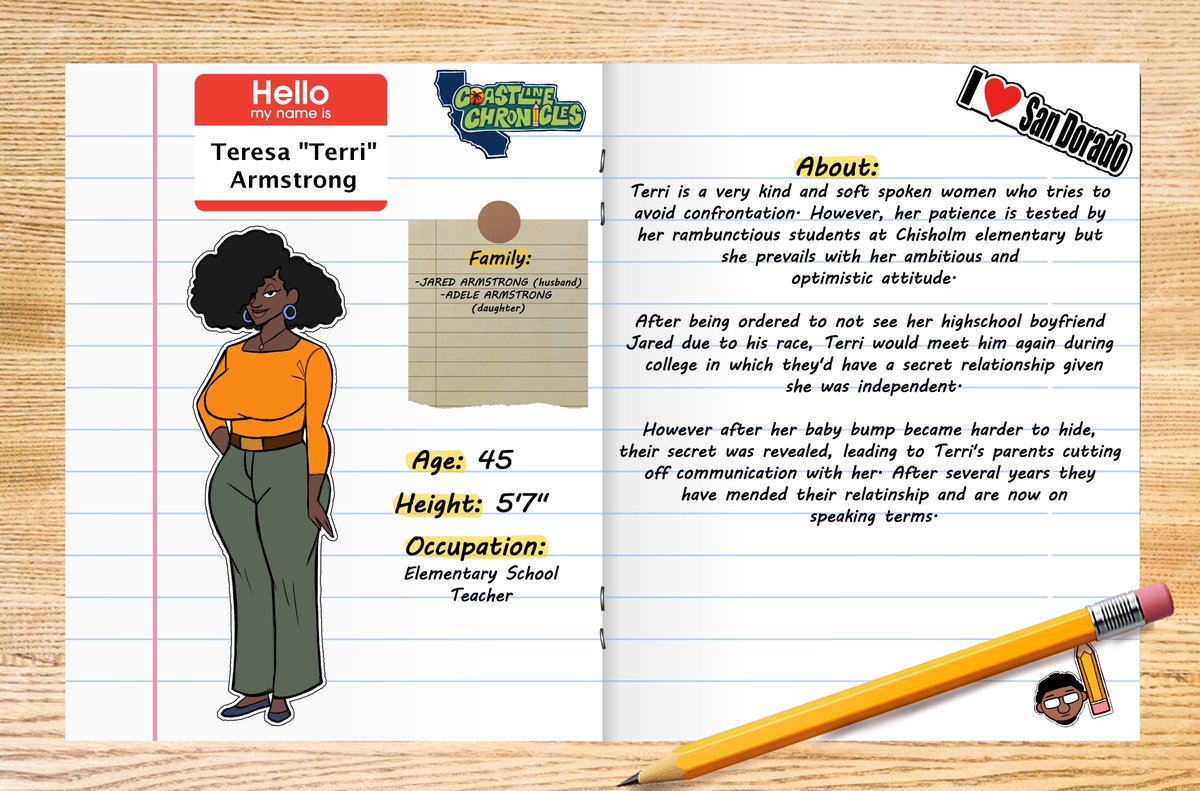 Hello
my name is
Teresa "Terri"
Armstrong
COASTLINE
CHRONICLES
Family:
-JARED ARMSTRONG (husband)
-ADELE ARMSTRONG
(daughter)
Age: 45
Height: 5'7"
Occupation:
Elementary School
Teacher
I ❤ San Dorado
About:
Terri is a very kind and soft spoken women who tries to
avoid confrontation. However, her patience is tested by
her rambunctious students at Chisholm elementary but
she prevails with her ambitious and
optimistic attitude.
After being ordered to not see her highschool boyfriend
Jared due to his race, Terri would meet him again during
college in which they'd have a secret relationship given
she was independent.
However after her baby bump became harder to hide,
their secret was revealed, leading to Terri's parents cutting
off communication with her. After several years they
have mended their relatinship and are now on
speaking terms.